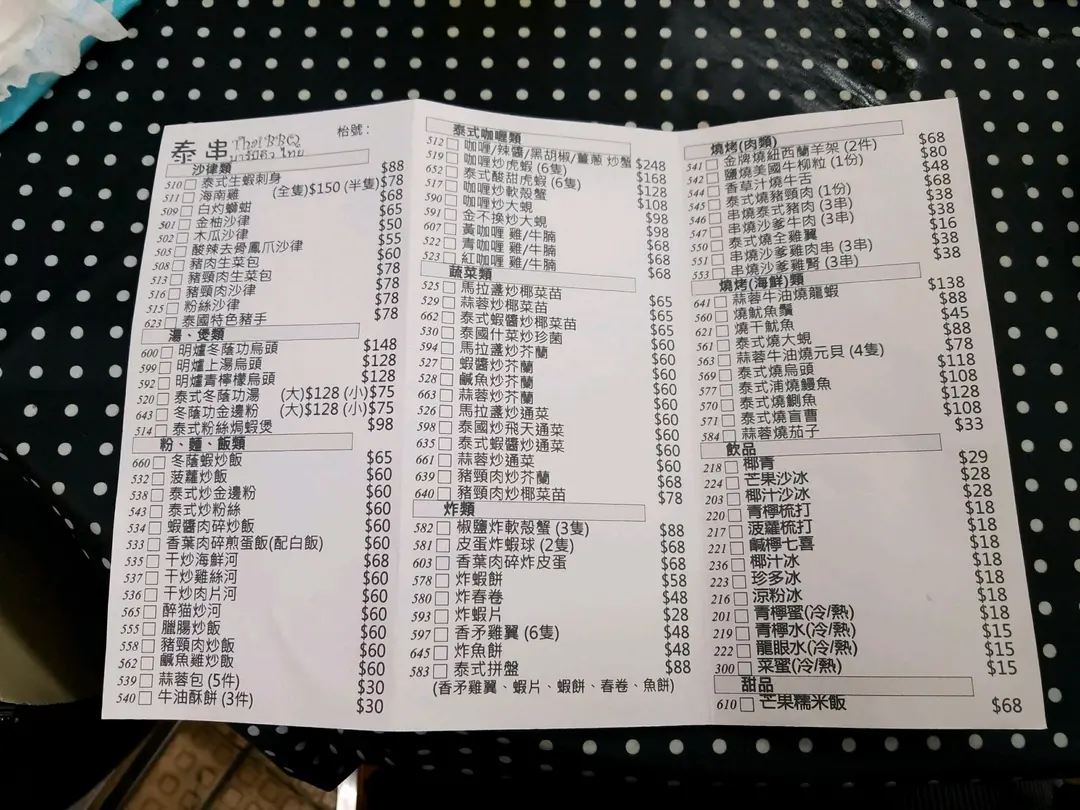 泰串 Thai BBQ 枱號：
บาร์บีคิว ไทย
沙律類
510 □ 泰式生蝦刺身 $88
511 □ 海南雞 (全隻)$150 (半隻)$78
509 □ 白灼蟛蚶 $68
501 □ 金柚沙律 $65
502 □ 木瓜沙律 $50
505 □ 酸辣去骨鳳爪沙律 $55
508 □ 豬肉生菜包 $60
513 □ 豬頸肉生菜包 $78
516 □ 豬頸肉沙律 $78
515 □ 粉絲沙律 $78
623 □ 泰國特色豬手 $78
湯、煲類
600 □ 明爐冬蔭功烏頭 $148
599 □ 明爐上湯烏頭 $128
592 □ 明爐青檸檬烏頭 $128
520 □ 泰式冬蔭功湯 (大)$128 (小)$75
643 □ 冬蔭功金邊粉 (大)$128 (小)$75
514 □ 泰式粉絲焗蝦煲 $98
粉、麵、飯類
660 □ 冬蔭蝦炒飯 $65
532 □ 菠蘿炒飯 $60
538 □ 泰式炒金邊粉 $60
543 □ 泰式炒粉絲 $60
534 □ 蝦醬肉碎炒飯 $60
533 □ 香葉肉碎煎蛋飯(配白飯) $60
535 □ 干炒海鮮河 $68
537 □ 干炒雞絲河 $60
536 □ 干炒肉片河 $60
565 □ 醉猫炒河 $60
555 □ 臘腸炒飯 $60
558 □ 豬頸肉炒飯 $60
562 □ 鹹魚雞炒飯 $60
539 □ 蒜蓉包 (5件) $30
540 □ 牛油酥餅 (3件) $30
泰式咖喱類
512 □ 咖喱/辣醬/黑胡椒/薑蔥 炒蟹 $248
519 □ 咖喱炒虎蝦 (6隻) $168
652 □ 泰式酸甜虎蝦 (6隻) $128
517 □ 咖喱炒軟殼蟹 $108
590 □ 咖喱炒大蜆 $98
591 □ 金不換炒大蜆 $98
607 □ 黃咖喱 雞/牛腩 $68
522 □ 青咖喱 雞/牛腩 $68
523 □ 紅咖喱 雞/牛腩 $68
蔬菜類
525 □ 馬拉盞炒椰菜苗 $65
529 □ 蒜蓉炒椰菜苗 $65
662 □ 泰式蝦醬炒椰菜苗 $65
530 □ 泰國什菜炒珍菌 $65
594 □ 馬拉盞炒芥蘭 $60
527 □ 蝦醬炒芥蘭 $60
528 □ 鹹魚炒芥蘭 $60
663 □ 蒜蓉炒芥蘭 $60
526 □ 馬拉盞炒通菜 $60
598 □ 泰國炒飛天通菜 $60
635 □ 泰式蝦醬炒通菜 $60
661 □ 蒜蓉炒通菜 $60
639 □ 豬頸肉炒芥蘭 $68
640 □ 豬頸肉炒椰菜苗 $78
炸類
582 □ 椒鹽炸軟殼蟹 (3隻) $88
581 □ 皮蛋炸蝦球 (2隻) $68
603 □ 香葉肉碎炸皮蛋 $68
578 □ 炸蝦餅 $58
580 □ 炸春卷 $48
593 □ 炸蝦片 $28
597 □ 香矛雞翼 (6隻) $48
645 □ 炸魚餅 $48
583 □ 泰式拼盤 $88
(香矛雞翼、蝦片、蝦餅、春卷、魚餅)
燒烤(肉類)
541 □ 金牌燒紐西蘭羊架 (2件) $68
542 □ 鹽燒美國牛柳粒 (1份) $80
544 □ 香草汁燒牛舌 $48
545 □ 泰式燒豬頸肉 (1份) $68
546 □ 串燒泰式豬肉 (3串) $38
547 □ 串燒沙爹牛肉 (3串) $38
550 □ 泰式燒全雞翼 $16
551 □ 串燒沙爹雞肉串 (3串) $38
553 □ 串燒沙爹雞腎 (3串) $38
燒烤(海鮮)類
641 □ 蒜蓉牛油燒龍蝦 $138
560 □ 燒魷魚鬚 $88
621 □ 燒干魷魚 $45
561 □ 泰式燒大蜆 $88
563 □ 蒜蓉牛油燒元貝 (4隻) $78
569 □ 泰式燒烏頭 $118
577 □ 泰式浦燒鰻魚 $108
570 □ 泰式燒鰂魚 $128
571 □ 泰式燒盲曹 $108
584 □ 蒜蓉燒茄子 $33
飲品
218 □ 椰青 $29
224 □ 芒果沙冰 $28
203 □ 椰汁沙冰 $28
220 □ 青檸梳打 $18
217 □ 菠蘿梳打 $18
221 □ 鹹檸七喜 $18
236 □ 椰汁冰 $18
223 □ 珍多冰 $18
216 □ 涼粉冰 $18
201 □ 青檸蜜(冷/熱) $18
219 □ 青檸水(冷/熱) $15
222 □ 龍眼水(冷/熱) $15
300 □ 菜蜜(冷/熱) $15
甜品
610 □ 芒果糯米飯 $68